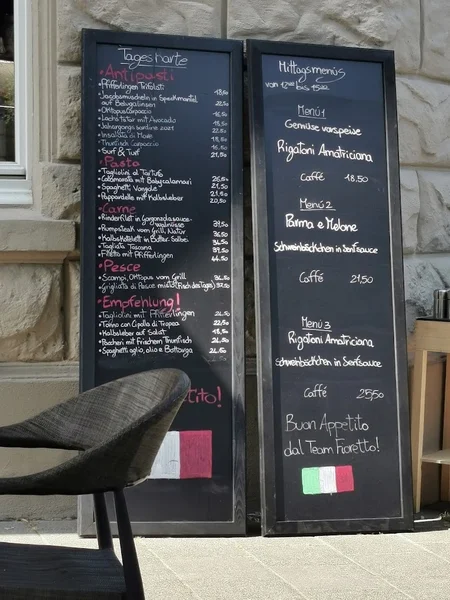 Tageskarte
Antipasti
•Pfifferlingen Trifolati 18,50
•Jacobsmuscheln in Speckmantel
auf Belugalinsen 22,50
•Oktopus Carpaccio
•Lachstatar mit Avocado
•Jahrgangs Sardine 2021
•Insalata di Mare
•Thunfisch Carpaccio
•Surf & Turf 21,50
Pasta
•Tagliolini al Tartufo 26,50
•Calamarata mit Babycalamari 21,50
•Spaghetti Vongole 21,50
•Pappardelle mit Kalbsleber 20,50
Carne
•Rinderfilet in Gorgonzolasauce
Walnüsse 39,50
•Rumpsteak vom Grill, Natur 36,50
•Kalbskotelett in Butter Salbe 36,50
•Tagliata Toscana 39,50
•Filetto mit Pfifferlingen 44,50
Pesce
•Scampi, Oktopus vom Grill 34,50
•Grigliata di Pesce misto (Fisch des Tages) 37,50
Empfehlung!
•Tagliolini mit Pfifferlingen 24,50
•Tonno con Cipolla di Tropea 22,50
•Kalbsleber auf Salat 18,50
•Paccheri mit frischem Thunfisch 24,50
•Spaghetti aglio, olio e Bottarga 24,50
tito!
Mittagsmenüs
von 12:00 bis 15:00
Menü 1
Gemüse Vorspeise
Rigatoni Amatriciana
Caffé 18.50
Menü 2
Parma e Melone
Schweinbäckchen in Senfsauce
Caffé 21,50
Menü 3
Rigatoni Amatriciana
Schweinbäckchen in Senfsauce
Caffé 25,50
Buon Appetito
dal Team Fioretto!